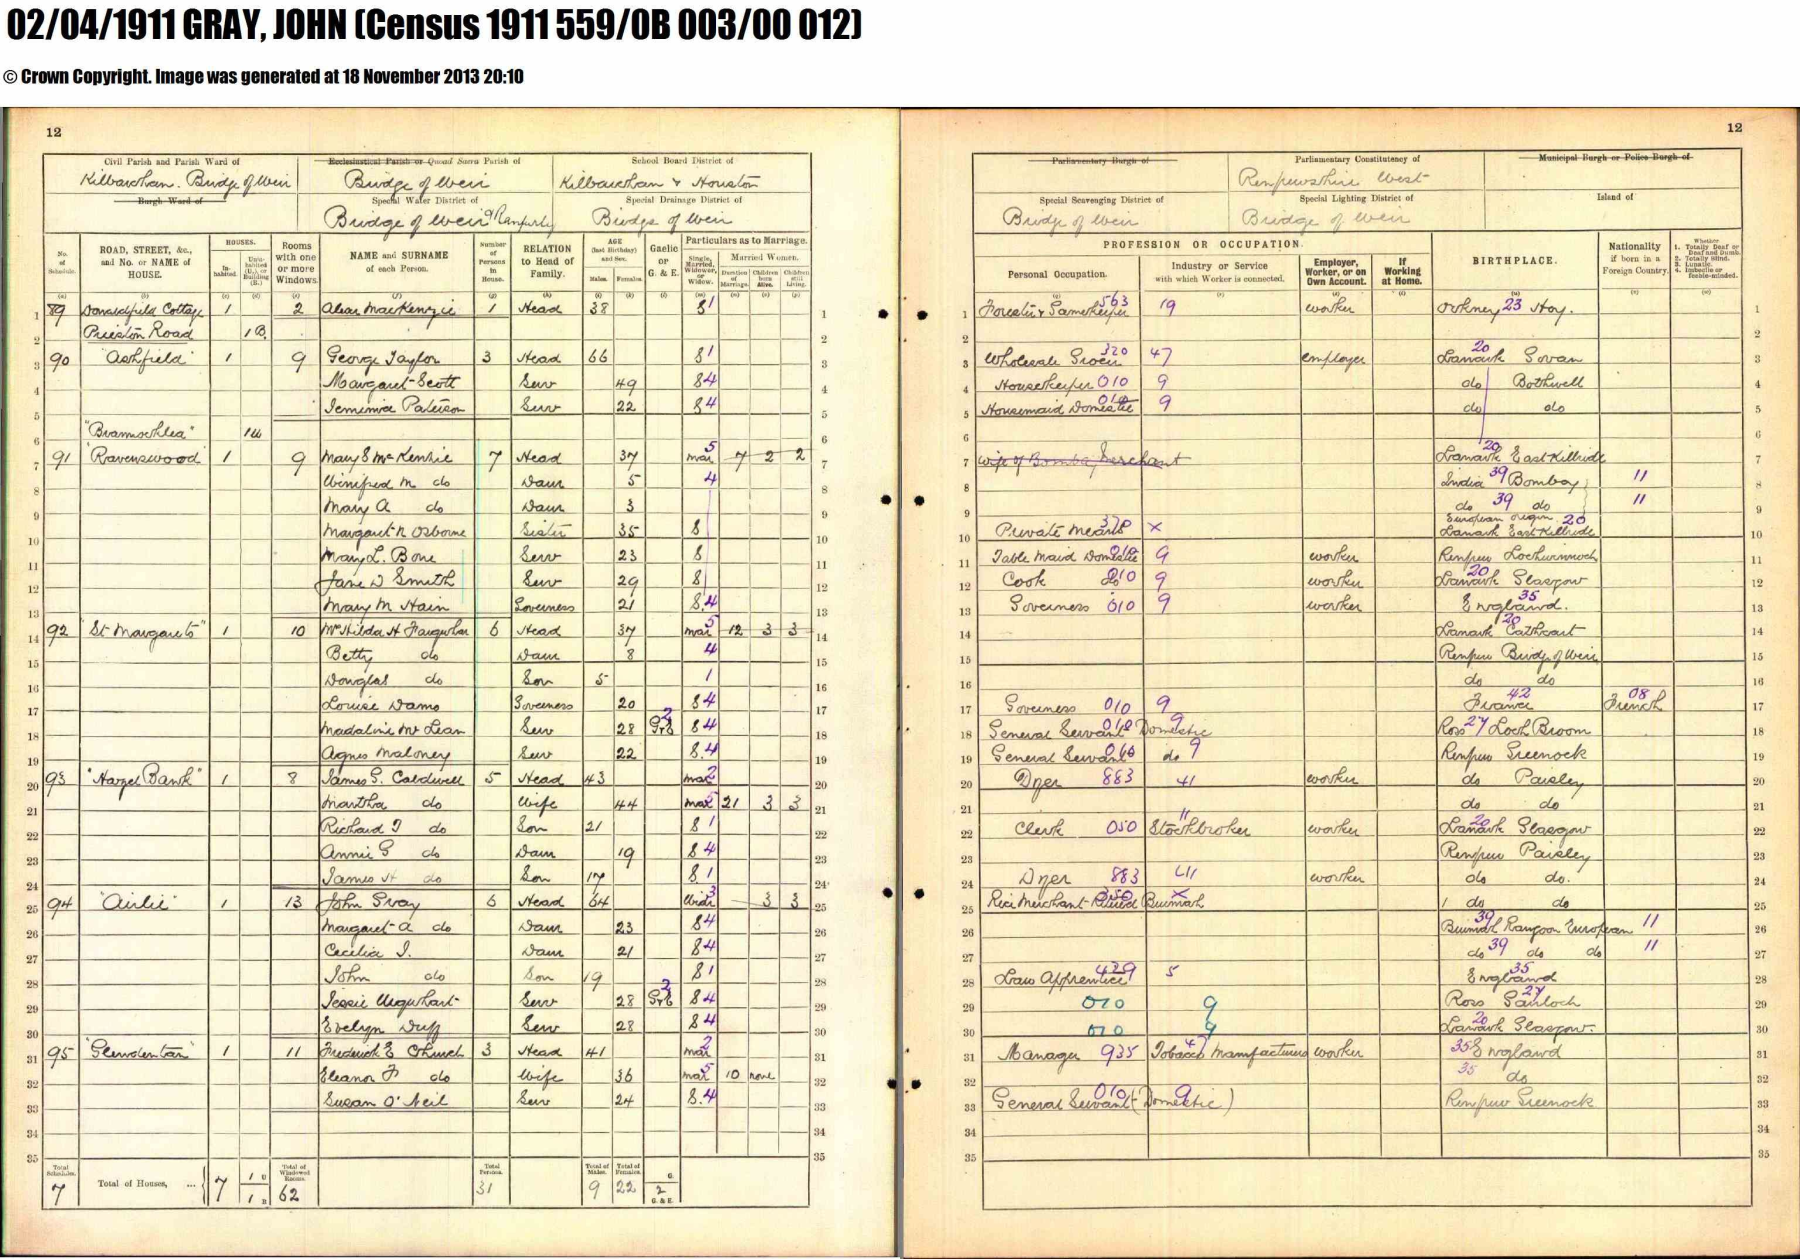 02/04/1911 GRAY, JOHN (Census 1911 559/0B 003/00 012)
© Crown Copyright. Image was generated at 18 November 2013 20:10
12
Civil Parish and Parish Ward of
Ecclesiastical Parish or Quoad Sacra Parish of
School Board District of
Kilbarchan. Bridge of Weir
Bridge of Weir
Kilbarchan & Houston
Burgh Ward of
Special Water District of
Special Drainage District of
Bridge of Weir & Ranfurly
Bridge of Weir
No. of Schedule.
ROAD, STREET, &c., and No. or NAME of HOUSE.
HOUSES.
Inhabited.
Uninhabited (U.), or Building (B.)
Rooms with one or more Windows.
NAME and SURNAME of each Person.
Number of Persons in House.
RELATION to Head of Family.
AGE (last Birthday) and Sex.
Males.
Females.
Gaelic or G. & E.
Particulars as to Marriage.
Single, Married, Widower, or Widow.
Married Women.
Duration of Marriage.
Children born Alive.
Children still Living.
1 89 Donaldfield Cottage 1 2 MacKenzie 1 Head 38 S 1
2 Prieston Road 1 B.
3 90 "Ashfield" 1 9 George Taylor 3 Head 66 S 1
4 Margaret Scott Serv 49 S 4
5 Jemimia Paterson Serv 22 S 4
6 1 U
7 91 "Ravenswood" 1 9 Mary S McKenzie 7 Head 37 mar 5 7 2 2
8 Winifred M do Daur 5 4
9 Mary A do Daur 3
10 Margaret N Osborne Sister 35 S
11 Mary L. Bone Serv 23 S
12 Jane D Smith Serv 29 S
13 Mary M Hain Governess 21 S 4
14 92 "St Margarets" 1 10 Mrs Hilda H Farquhar 6 Head 37 mar 5 12 3 3
15 Betty do Daur 8 4
16 Douglas do Son 5 1
17 Louise Dams Governess 20 S 4
18 Madaline McLean Serv 28 G&E 2 S 4
19 Agnes Maloney Serv 22 S 4
20 93 "Hazel Bank" 1 8 James G. Caldwell 5 Head 43 mar 2
21 Martha do Wife 44 mar 5 21 3 3
22 Richard T do Son 21 S 1
23 Annie G do Daur 19 S 4
24 James H do Son 17 S 1
25 94 "Airlie" 1 13 John Gray 6 Head 64 Widr 3 3 3
26 Margaret A do Daur 23 S 4
27 Cecilia I. Daur 21 S 4
28 John do Son 19 S 1
29 Jessie Urquhart Serv 28 G&E 2 S 4
30 Evelyn Duff Serv 28 S 4
31 95 "Glendentan" 1 11 Frederick E Church 3 Head 41 mar 2
32 Eleanor F do Wife 36 mar 5 10 none
33 Susan O'Neil Serv 24 S 4
34
35
Total Schedules. 7
Total of Houses, ... 7 1 U 1 B
Total of Windowed Rooms. 62
Total Persons. 31
Total of Males. 9
Total of Females. 22
G. 2 G. & E.
12
Parliamentary Burgh of
Parliamentary Constitutency of
Municipal Burgh or Police Burgh of
Renfrewshire West
Special Scavenging District of
Special Lighting District of
Island of
Bridge of Weir
Bridge of Weir
PROFESSION OR OCCUPATION.
Personal Occupation.
Industry or Service with which Worker is connected.
Employer, Worker, or on Own Account.
If Working at Home.
BIRTHPLACE.
Nationality if born in a Foreign Country.
Whether 1. Totally Deaf or Deaf and Dumb. 2. Totally Blind. 3. Lunatic. 4. Imbecile or feeble-minded.
1 Forester & Gamekeeper 563 19 worker Orkney 23 Hoy.
2
3 Wholesale Grocer 320 47 employer Lanark 20 Govan
4 Housekeeper 010 9 do Bothwell
5 Housemaid Domestic 010 9 do do
6
7 Wife of Bombay Merchant Lanark 20 East Kilbride
8 India 39 Bombay 11
9 do 39 do 11
European origin
10 Private Means 378 x Lanark 20 East Kilbride
11 Table Maid Domestic 010 9 worker Renfrew Lochwinnoch
12 Cook do 010 9 worker Lanark 20 Glasgow
13 Governess 010 9 worker England. 35
14 Lanark 20 Cathcart
15 Renfrew Bridge of Weir
16 do do
17 Governess 010 9 France 42 French 08
18 General Servant 010 Domestic 9 Ross 27 Loch Broom
19 General Servant 010 do 9 Renfrew Greenock
20 Dyer 883 41 worker do Paisley
21 do do
22 Clerk 050 Stockbroker 11 worker Lanark 20 Glasgow
23 Renfrew Paisley
24 Dyer 883 41 worker do do.
25 Rice Merchant Retired 350 Burmah x do do
26 Burmah 39 Rangoon European 11
27 do 39 do do 11
28 Law Apprentice 429 5 England 35
29 010 9 Ross 27 Gairloch
30 010 9 Lanark 20 Glasgow
31 Manager 935 Tobacco Manufacturers 47 worker 35 England
32 35 do
33 General Servant 010 (Domestic) 9 Renfrew Greenock
34
35